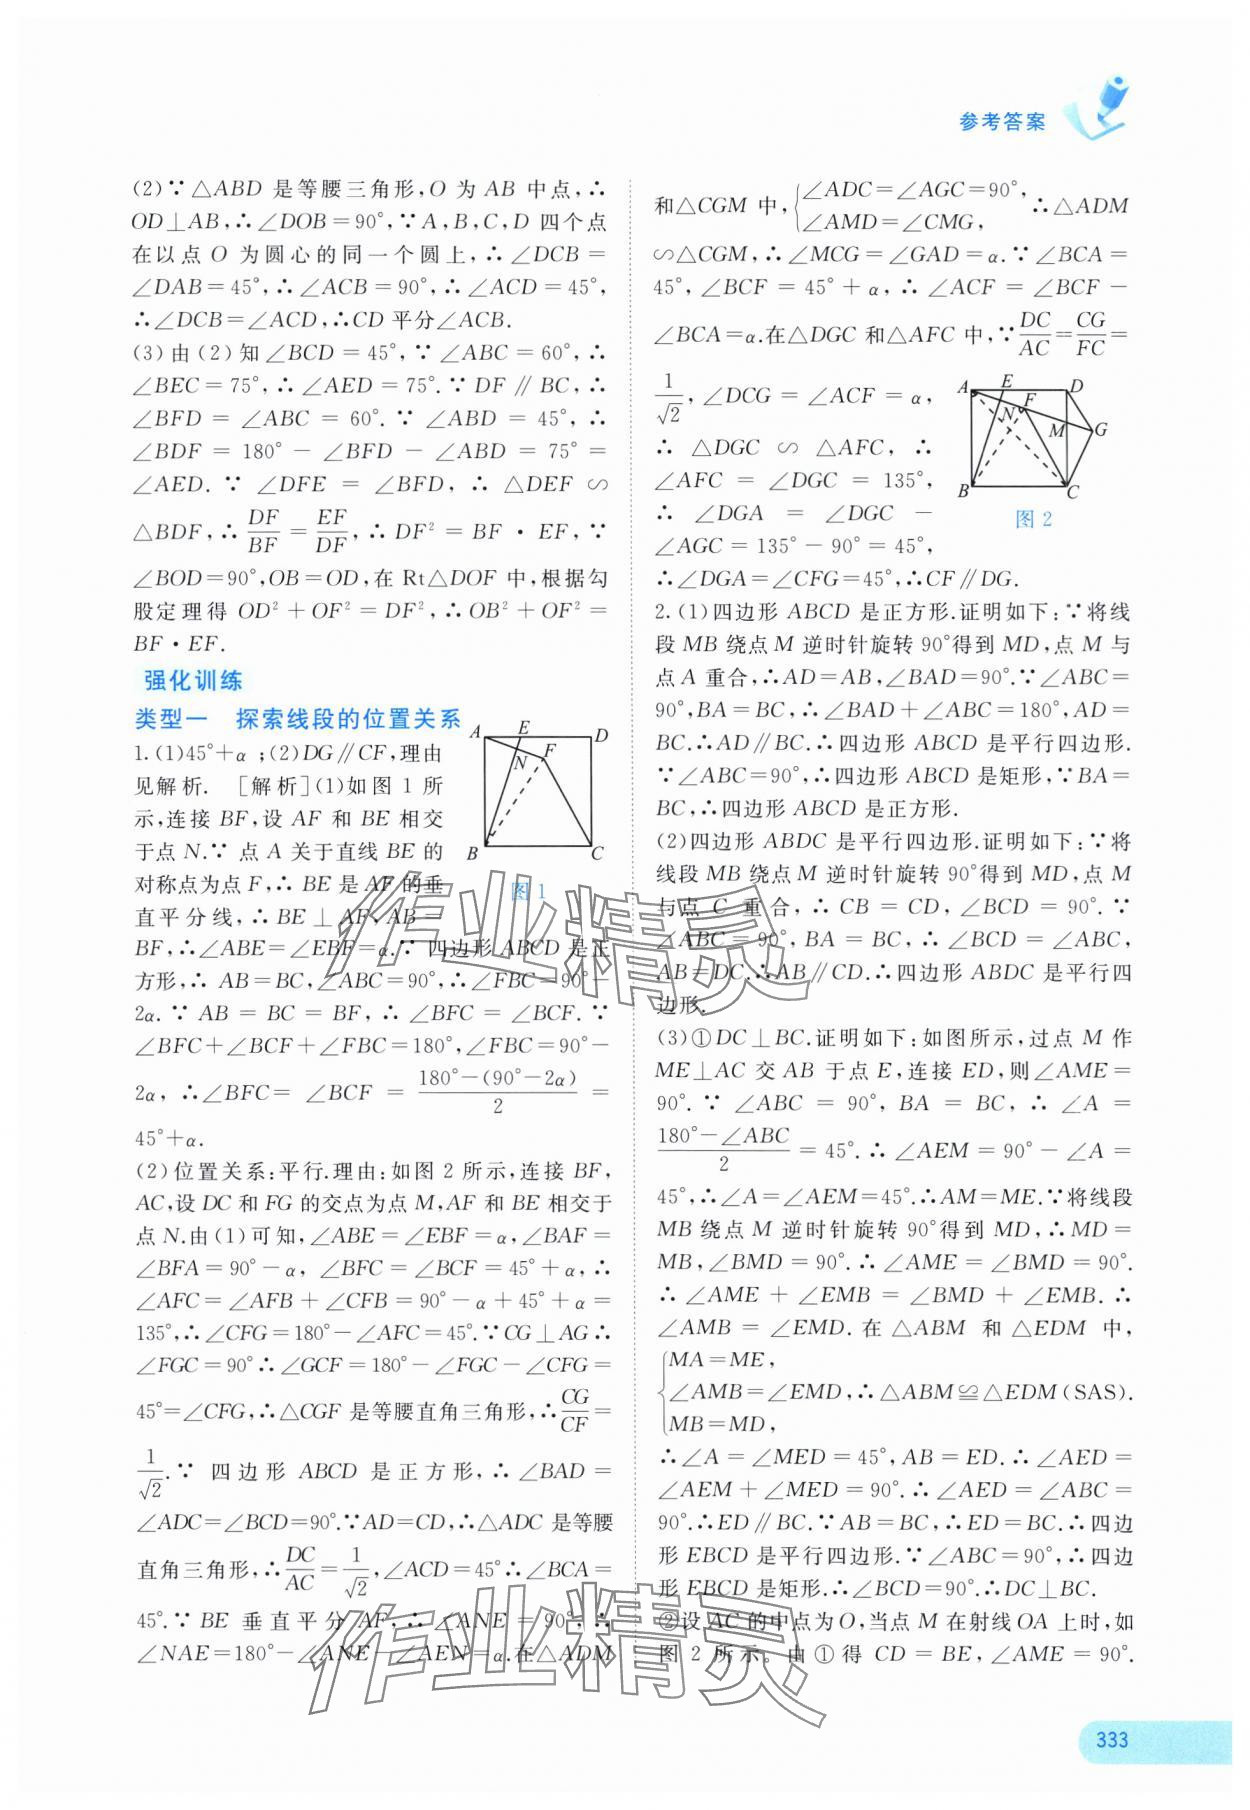 参考答案
(2)∵△ABD 是等腰三角形,O 为 AB 中点,∴
OD⊥AB,∴∠DOB=90°,∵A,B,C,D 四个点
在以点 O 为圆心的同一个圆上,∴∠DCB=
∠DAB=45°,∴∠ACB=90°,∴∠ACD=45°,
∴∠DCB=∠ACD,∴CD 平分∠ACB.
(3)由(2)知∠BCD=45°,∵∠ABC=60°,∴
∠BEC=75°,∴∠AED=75°.∵DF∥BC,∴
∠BFD=∠ABC=60°.∵∠ABD=45°,∴
∠BDF=180°-∠BFD-∠ABD=75°=
∠AED.∵∠DFE=∠BFD,∴△DEF∽
△BDF,∴DF/BF=EF/DF,∴DF²=BF·EF,∵
∠BOD=90°,OB=OD,在 Rt△DOF 中,根据勾
股定理得 OD²+OF²=DF²,∴OB²+OF²=
BF·EF.
强化训练
类型一 探索线段的位置关系
1.(1)45°+α;(2)DG∥CF,理由
见解析. [解析](1)如图 1 所
示,连接 BF,设 AF 和 BE 相交
于点 N.∵点 A 关于直线 BE 的
对称点为点 F,∴BE 是 AF 的垂
直平分线,∴BE⊥AF,AB=
A E D
F
N
B C
图 1
BF,∴∠ABE=∠EBF=α.∵四边形 ABCD 是正
方形,∴AB=BC,∠ABC=90°,∴∠FBC=90°-
2α.∵AB=BC=BF,∴∠BFC=∠BCF.∵
∠BFC+∠BCF+∠FBC=180°,∠FBC=90°-
2α,∴∠BFC=∠BCF=180°-(90°-2α)/2=
45°+α.
(2)位置关系:平行.理由:如图 2 所示,连接 BF,
AC,设 DC 和 FG 的交点为点 M,AF 和 BE 相交于
点 N.由(1)可知,∠ABE=∠EBF=α,∠BAF=
∠BFA=90°-α,∠BFC=∠BCF=45°+α,∴
∠AFC=∠AFB+∠CFB=90°-α+45°+α=
135°,∴∠CFG=180°-∠AFC=45°.∵CG⊥AG∴
∠FGC=90°∴∠GCF=180°-∠FGC-∠CFG=
45°=∠CFG,∴△CGF 是等腰直角三角形,∴CG/CF=
1/√2.∵四边形 ABCD 是正方形,∴∠BAD=
∠ADC=∠BCD=90°.∵AD=CD,∴△ADC 是等腰
直角三角形,∴DC/AC=1/√2,∠ACD=45°∴∠BCA=
45°.∵BE 垂直平分 AF,∴∠ANE=90°,∴
∠NAE=180°-∠ANE-∠AEN=α.在△ADM
和△CGM 中,{∠ADC=∠AGC=90°,
∠AMD=∠CMG, ∴△ADM
∽△CGM,∴∠MCG=∠GAD=α.∵∠BCA=
45°,∠BCF=45°+α,∴∠ACF=∠BCF-
∠BCA=α.在△DGC 和△AFC 中,∵DC/AC=CG/FC=
1/√2,∠DCG=∠ACF=α,
∴△DGC∽△AFC,∴
∠AFC=∠DGC=135°,
∴∠DGA=∠DGC-
∠AGC=135°-90°=45°,
A E D
F
N
M G
B C
图 2
∴∠DGA=∠CFG=45°,∴CF∥DG.
2.(1)四边形 ABCD 是正方形.证明如下:∵将线
段 MB 绕点 M 逆时针旋转 90°得到 MD,点 M 与
点 A 重合,∴AD=AB,∠BAD=90°.∵∠ABC=
90°,BA=BC,∴∠BAD+∠ABC=180°,AD=
BC.∴AD∥BC.∴四边形 ABCD 是平行四边形.
∵∠ABC=90°,∴四边形 ABCD 是矩形,∵BA=
BC,∴四边形 ABCD 是正方形.
(2)四边形 ABDC 是平行四边形.证明如下:∵将
线段 MB 绕点 M 逆时针旋转 90°得到 MD,点 M
与点 C 重合,∴CB=CD,∠BCD=90°.∵
∠ABC=90°,BA=BC,∴∠BCD=∠ABC,
AB=DC.∴AB∥CD.∴四边形 ABDC 是平行四
边形.
(3)①DC⊥BC.证明如下:如图所示,过点 M 作
ME⊥AC 交 AB 于点 E,连接 ED,则∠AME=
90°.∵∠ABC=90°,BA=BC,∴∠A=
180°-∠ABC/2=45°.∴∠AEM=90°-∠A=
45°,∴∠A=∠AEM=45°.∴AM=ME.∵将线段
MB 绕点 M 逆时针旋转 90°得到 MD,∴MD=
MB,∠BMD=90°.∴∠AME=∠BMD=90°.
∴∠AME+∠EMB=∠BMD+∠EMB.∴
∠AMB=∠EMD.在△ABM 和△EDM 中,
{MA=ME,
∠AMB=∠EMD,∴△ABM≌△EDM(SAS).
MB=MD,
∴∠A=∠MED=45°,AB=ED.∴∠AED=
∠AEM+∠MED=90°.∴∠AED=∠ABC=
90°.∴ED∥BC.∵AB=BC,∴ED=BC.∴四边
形 EBCD 是平行四边形.∵∠ABC=90°,∴四边
形 EBCD 是矩形.∴∠BCD=90°.∴DC⊥BC.
②设 AC 的中点为 O,当点 M 在射线 OA 上时,如
图 2 所示。由①得 CD=BE,∠AME=90°.
作业精灵
作业精灵
333